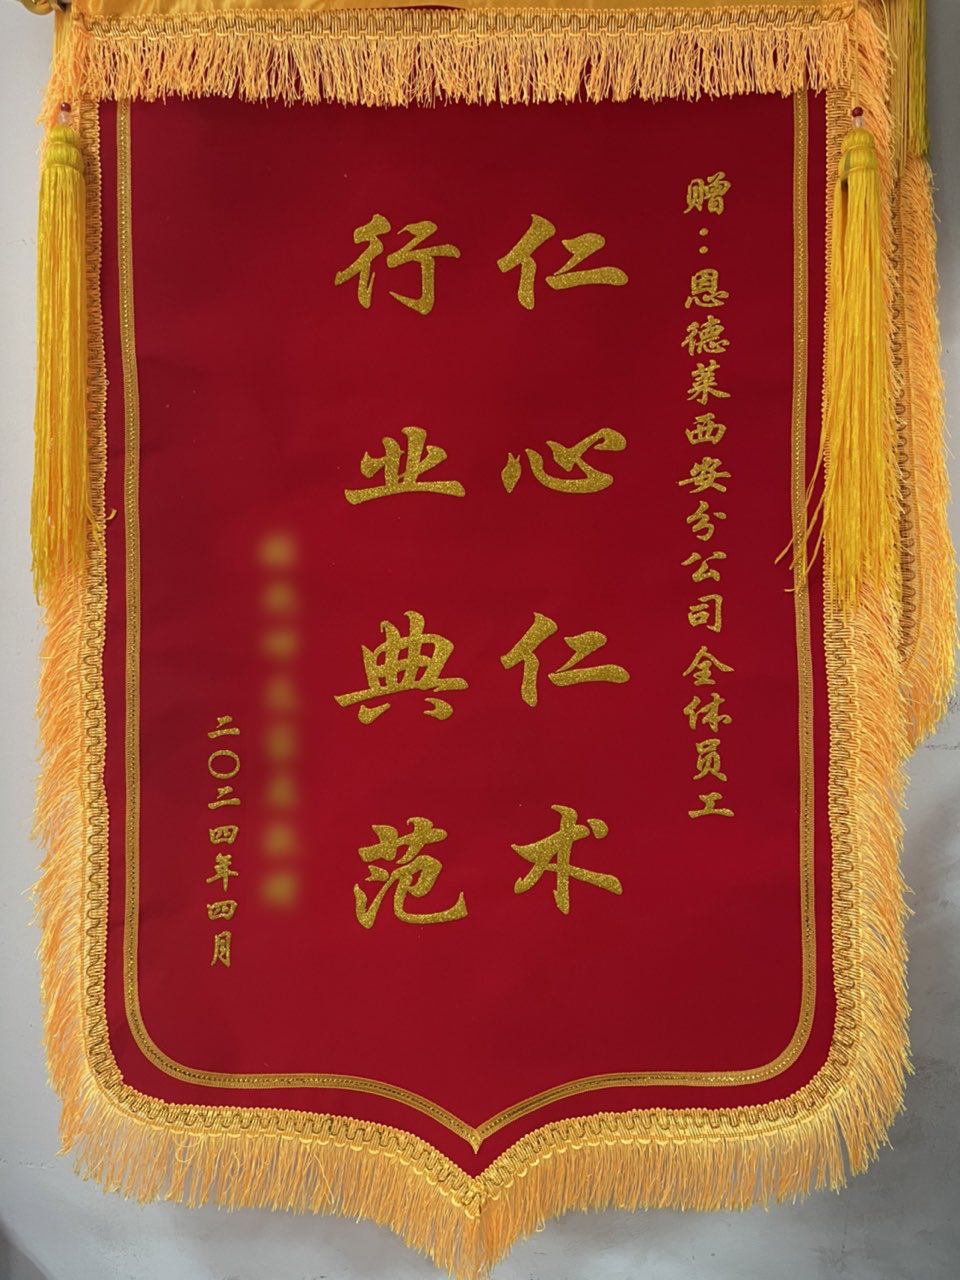 赠：恩德莱西安分公司全体员工
仁心仁术
行业典范
二〇二四年四月